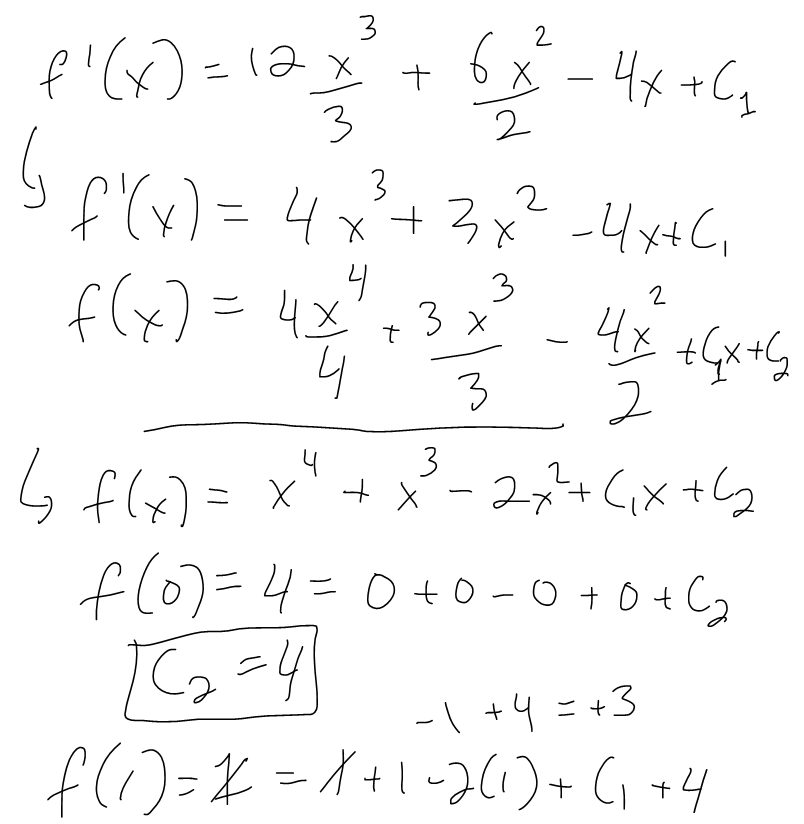 f'(x) = 12 x³/3 + 6x²/2 - 4x + C₁
↳ f'(x) = 4x³ + 3x² - 4x + C₁
f(x) = 4x⁴/4 + 3x³/3 - 4x²/2 + C₁x + C₂
↳ f(x) = x⁴ + x³ - 2x² + C₁x + C₂
f(0) = 4 = 0 + 0 - 0 + 0 + C₂
C₂ = 4
-1 + 4 = +3
f(1) = 1 = 1 + 1 - 2(1) + C₁ + 4